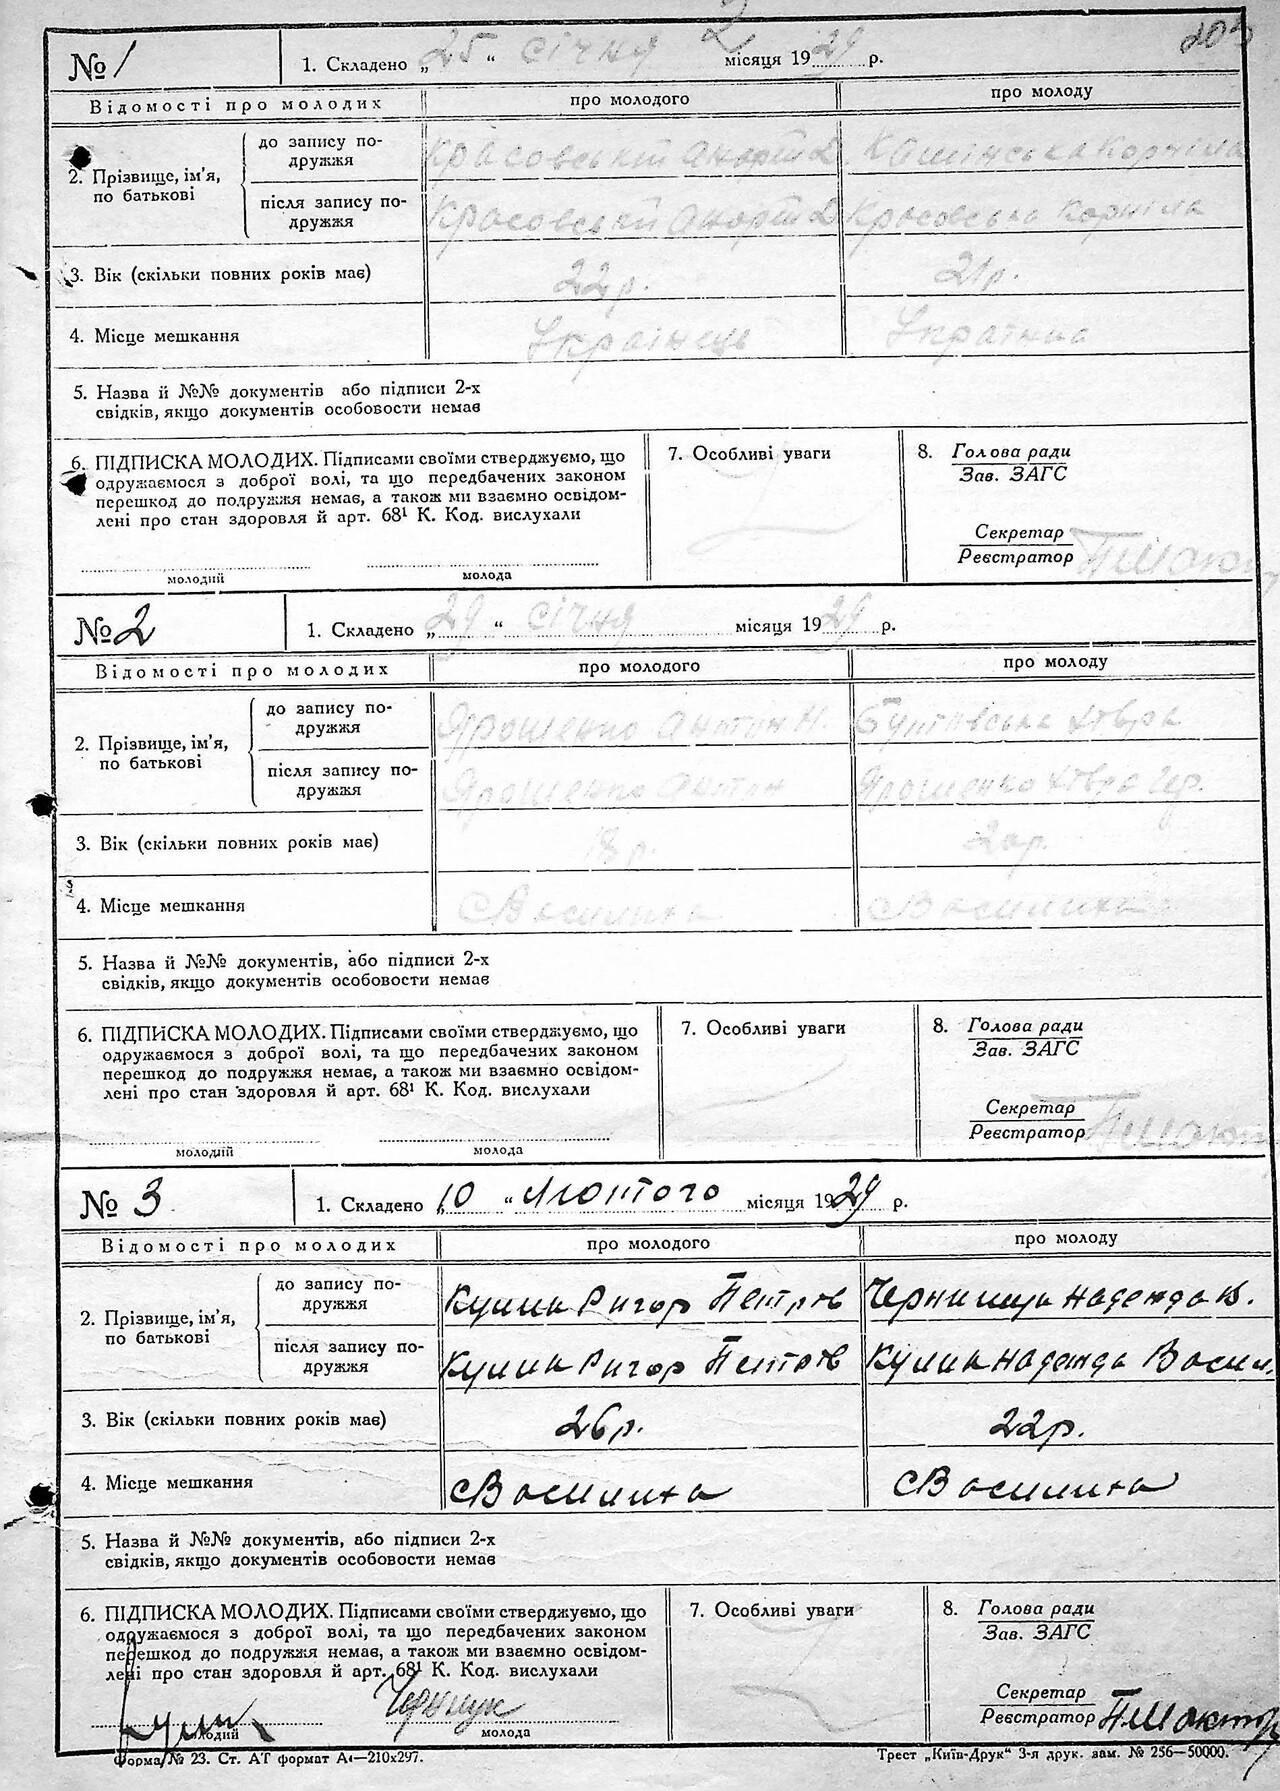 203
№ 1
1. Складено „25“ січня місяця 1929 р.
Відомості про молодих
про молодого
про молоду
2. Прізвище, ім'я, по батькові
до запису подружжя
Красовський
Камінська Корніла
після запису подружжя
Красовський
Красовська Корніла
3. Вік (скільки повних років має)
22р.
21р.
4. Місце мешкання
Українець
Українка
5. Назва й №№ документів або підписи 2-х
свідків, якщо документів особовости немає
6. ПІДПИСКА МОЛОДИХ. Підписами своїми стверджуємо, що
одружаємося з доброї волі, та що передбачених законом
перешкод до подружжя немає, а також ми взаємно освідом-
лені про стан здоровля й арт. 68¹ К. Код. вислухали
молодий
молода
7. Особливі уваги
8. Голова ради
Зав. ЗАГС
Секретар
Реєстратор
№ 2
1. Складено „29“ січня місяця 1929 р.
Відомості про молодих
про молодого
про молоду
2. Прізвище, ім'я, по батькові
до запису подружжя
Ярошенко Антон Н.
після запису подружжя
Ярошенко Антон
Ярошенко
3. Вік (скільки повних років має)
18р.
20р.
4. Місце мешкання
с Василиха
с Василиха
5. Назва й №№ документів, або підписи 2-х
свідків, якщо документів особовости немає
6. ПІДПИСКА МОЛОДИХ. Підписами своїми стверджуємо, що
одружаємося з доброї волі, та що передбачених законом
перешкод до подружжя немає, а також ми взаємно освідом-
лені про стан здоровля й арт. 68¹ К. Код. вислухали
молодий
молода
7. Особливі уваги
8. Голова ради
Зав. ЗАГС
Секретар
Реєстратор
№ 3
1. Складено „10“ Лютого місяця 1929 р.
Відомості про молодих
про молодого
про молоду
2. Прізвище, ім'я, по батькові
до запису подружжя
Кулик Ригор Петров
Надежда В.
після запису подружжя
Кулик Ригор Петров
Кулик Надежда Васил.
3. Вік (скільки повних років має)
26р.
22р.
4. Місце мешкання
с Василиха
с Василиха
5. Назва й №№ документів, або підписи 2-х
свідків, якщо документів особовости немає
6. ПІДПИСКА МОЛОДИХ. Підписами своїми стверджуємо, що
одружаємося з доброї волі, та що передбачених законом
перешкод до подружжя немає, а також ми взаємно освідом-
лені про стан здоровля й арт. 68¹ К. Код. вислухали
Кулик
молодий
молода
7. Особливі уваги
8. Голова ради
Зав. ЗАГС
Секретар
Реєстратор
Форма № 23. Ст. АТ формат А4—210х297.
Трест „Київ-Друк“ 3-я друк. зам. № 256—50000.